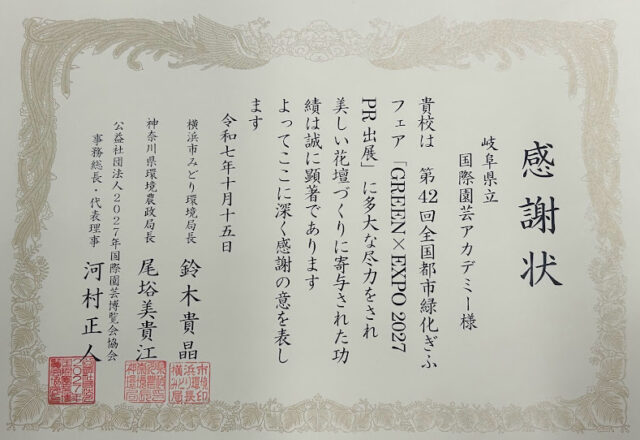 感謝状
岐阜県立
国際園芸アカデミー様
貴校は 第42回全国都市緑化ぎふ
フェア「GREEN×EXPO 2027
PR出展」に多大な尽力をされ
美しい花壇づくりに寄与された功
績は誠に顕著であります
よってここに深く感謝の意を表し
ます
令和七年十月十五日
横浜市みどり環境局長 鈴木貴晶
神奈川県環境農政局長 尾埼美貴江
公益社団法人2027年国際園芸博覧会協会
事務総長・代表理事 河村正人